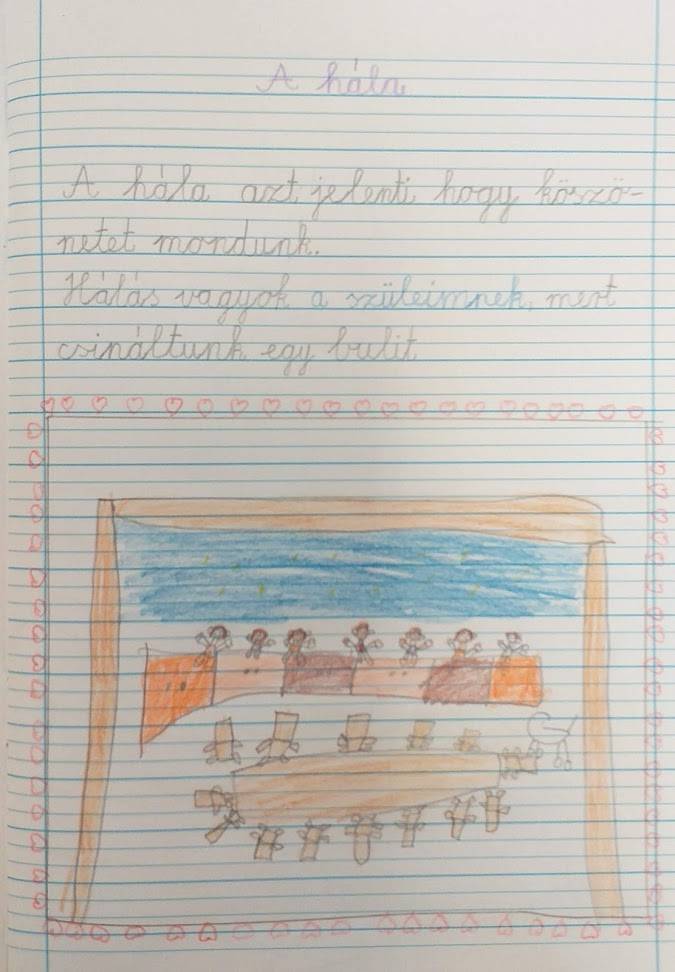 A hála
A hála azt jelenti hogy köszö-
netet mondunk.
Hálás vagyok a szüleimnek, mert
csináltunk egy bulit